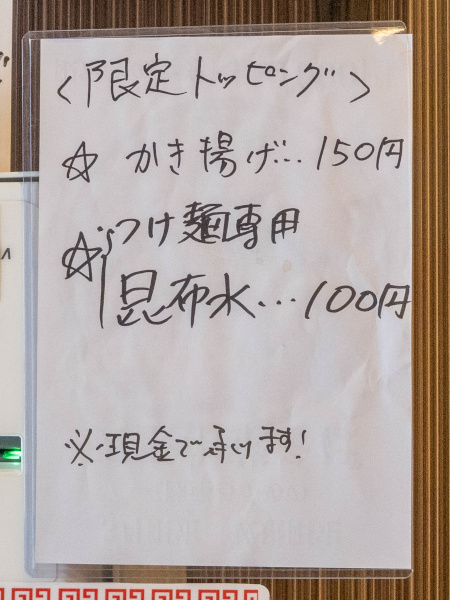 〈限定トッピング〉
☆ かき揚げ…150円
☆ つけ麺専用
昆布水…100円
※現金で承ります!